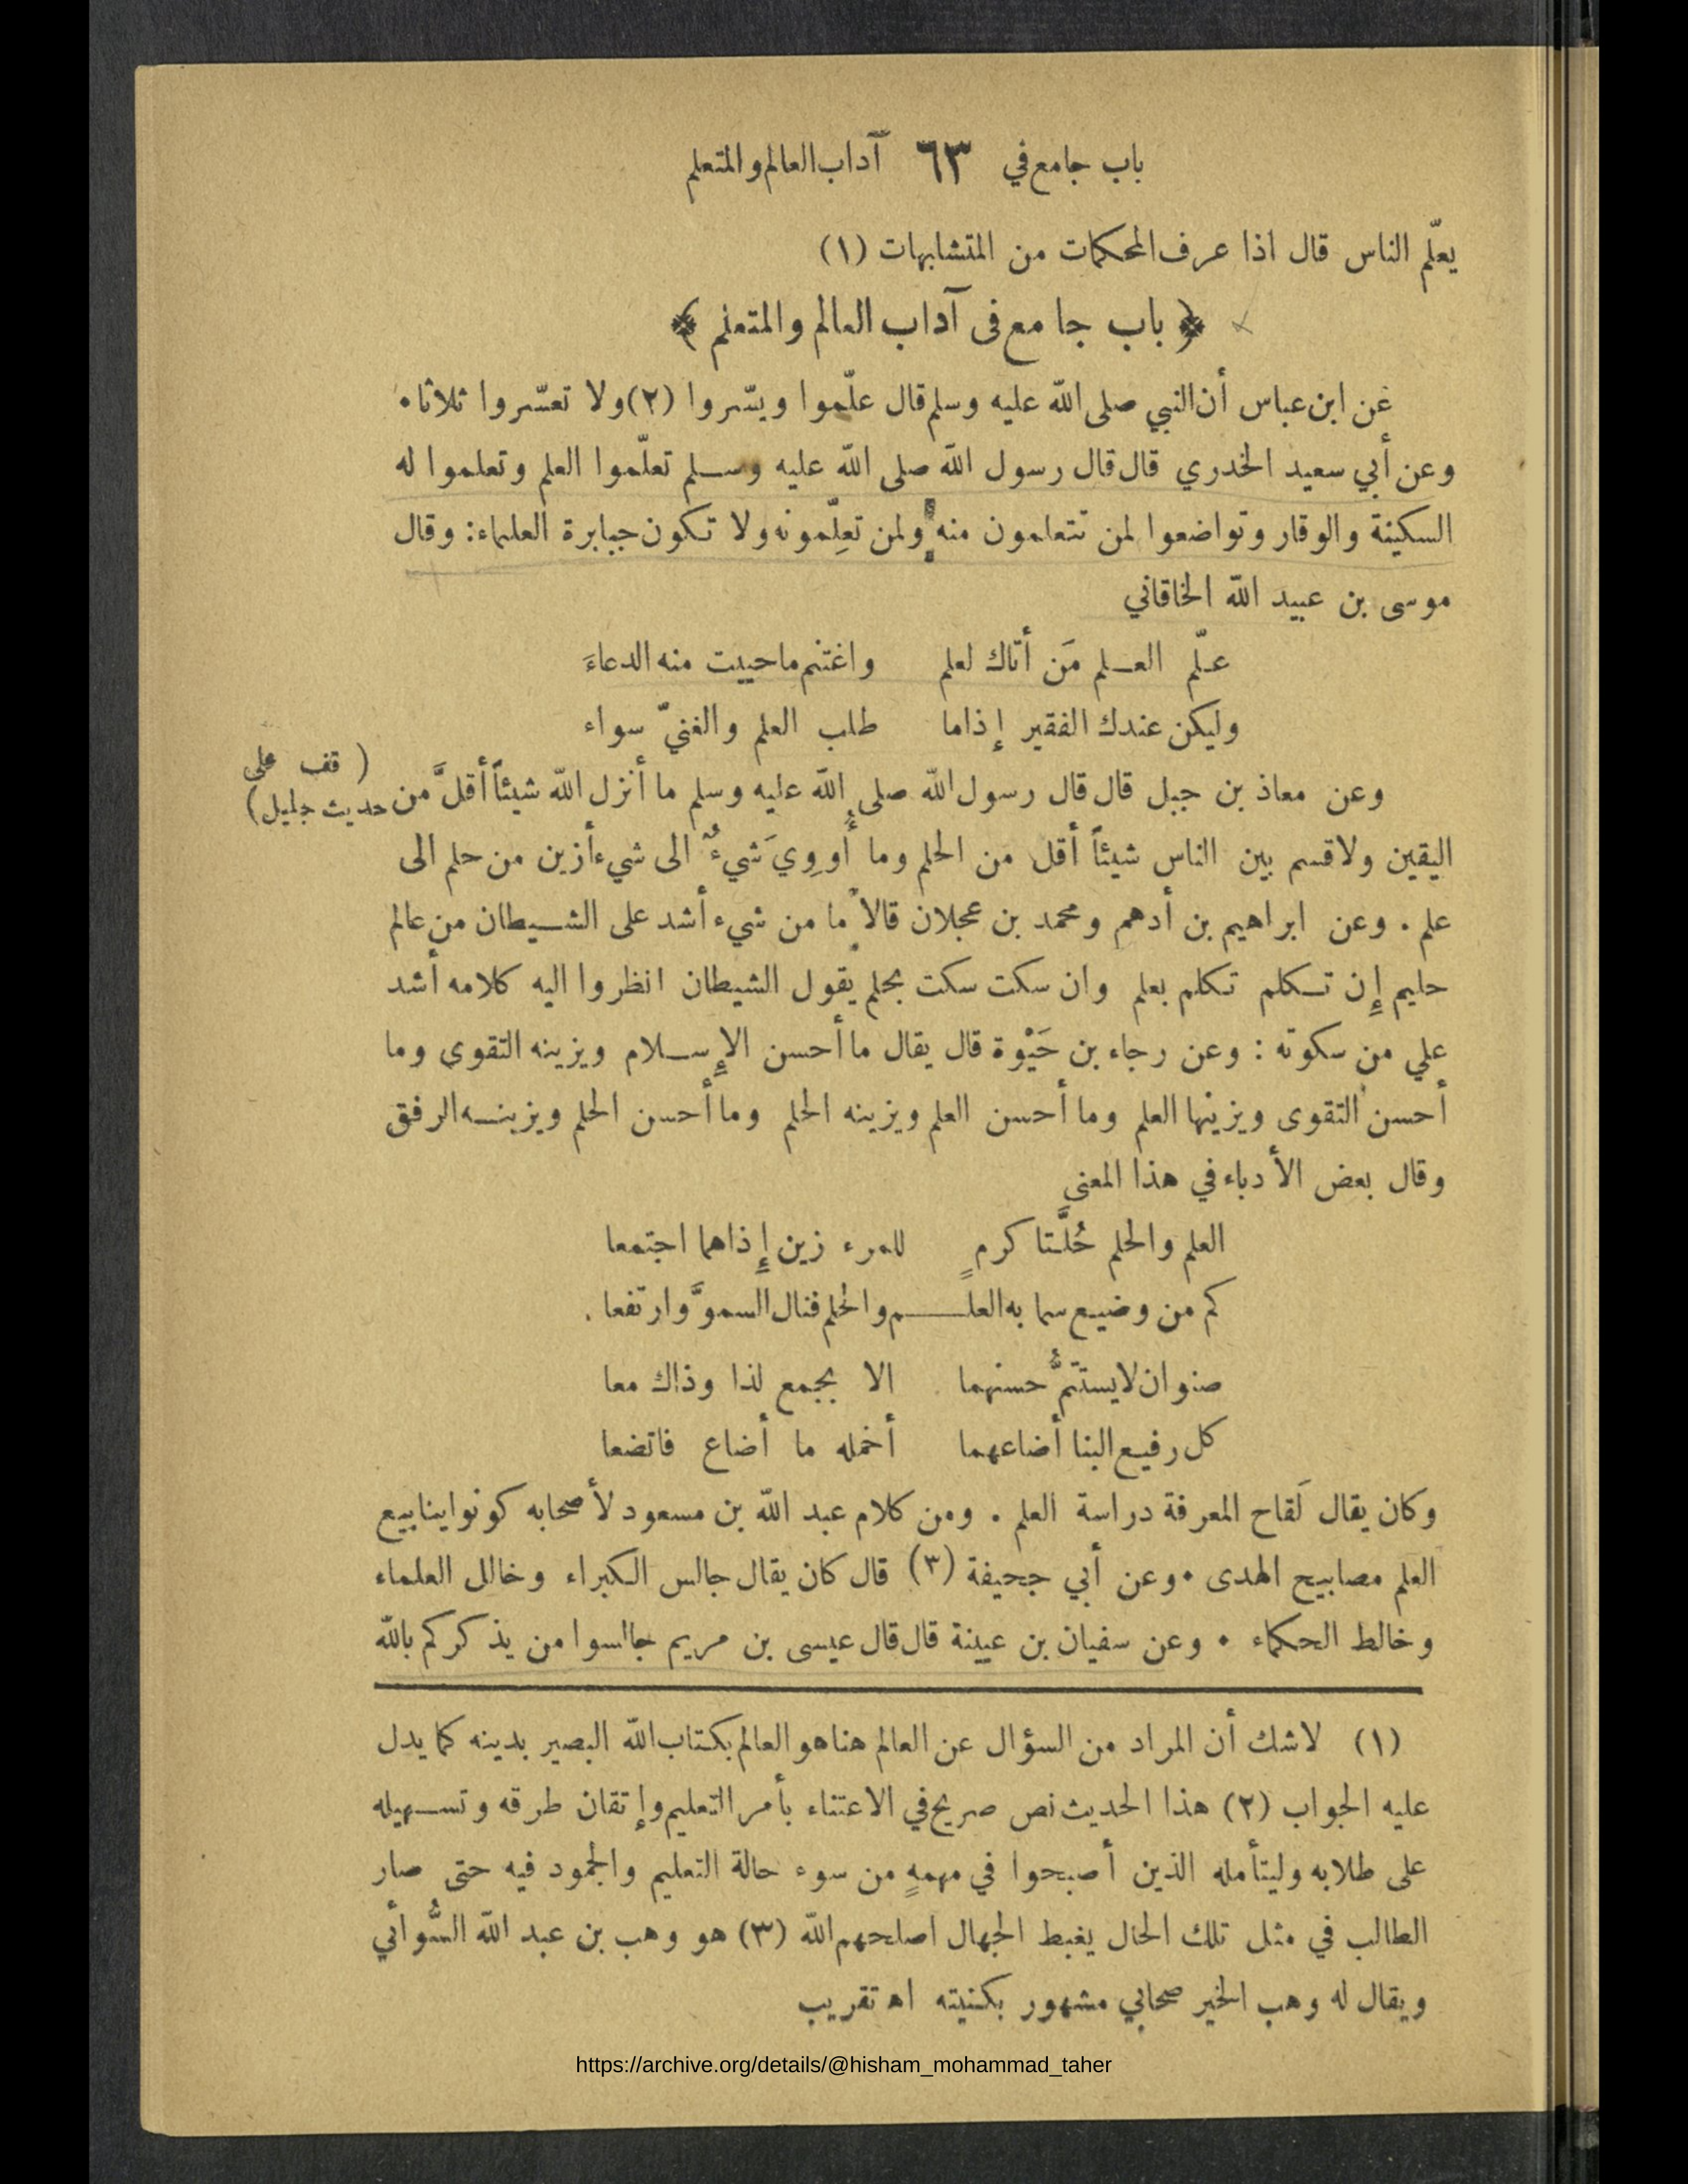 باب جامع في ٦٣ آداب العالم والمتعلم
يعلّم الناس قال اذا عرف المحكمات من المتشابهات (١)
﴿ باب جامع فى آداب العالم والمتعلم ﴾
عن ابن عباس أن النبي صلى الله عليه وسلم قال علّموا ويسّروا (٢) ولا تعسّروا ثلاثا.
وعن أبي سعيد الخدري قال قال رسول الله صلى الله عليه وسلم تعلّموا العلم وتعلموا له
السكينة والوقار وتواضعوا لمن تتعلمون منه ولمن تعلِّمونه ولا تكون جبابرة العلماء: وقال
موسى بن عبيد الله الخاقاني
علّم العلم مَن أتاك لعلم واغتنم ماحييت منه الدعاءَ
وليكن عندك الفقير إذاما طلب العلم والغنيّ سواء
وعن معاذ بن جبل قال قال رسول الله صلى الله عليه وسلم ما أنزل الله شيئاً أقلَّ من
( قف على
حديث جليل)
اليقين ولا قسم بين الناس شيئاً أقل من الحلم وما أُووِيَ شيءٌ الى شيء أزين من حلم الى
علم . وعن ابراهيم بن أدهم ومحمد بن عجلان قالا ما من شيء أشد على الشيطان من عالم
حليم إِن تكلم تكلم بعلم وان سكت سكت بحلم يقول الشيطان انظروا اليه كلامه أشد
علي من سكوته : وعن رجاء بن حَيْوة قال يقال ما أحسن الإِسلام ويزينه التقوى وما
أحسن التقوى ويزينها العلم وما أحسن العلم ويزينه الحلم وما أحسن الحلم ويزينه الرفق
وقال بعض الأدباء في هذا المعنى
العلم والحلم خُلَّتا كرمٍ للمرء زين إِذاهما اجتمعا
كم من وضيع سما به العلم والحلم فنال السموَّ وارتفعا .
صنوان لا يستتمُّ حسنهما الا بجمع لذا وذاك معا
كل رفيع البنا أضاعهما أخمله ما أضاع فاتضعا
وكان يقال لَقاح المعرفة دراسة العلم . ومن كلام عبد الله بن مسعود لأصحابه كونوا ينابيع
العلم مصابيح الهدى . وعن أبي جحيفة (٣) قال كان يقال جالس الكبراء وخالل العلماء
وخالط الحكماء . وعن سفيان بن عيينة قال قال عيسى بن مريم جالسوا من يذكركم بالله
(١) لاشك أن المراد من السؤال عن العالم هنا هو العالم بكتاب الله البصير بدينه كما يدل
عليه الجواب (٢) هذا الحديث نص صريح في الاعتناء بأمر التعليم وإتقان طرقه وتسهيله
على طلابه وليتأمله الذين أصبحوا في مهمهٍ من سوء حالة التعليم والجمود فيه حتى صار
الطالب في مثل تلك الحال يغبط الجهال اصلحهم الله (٣) هو وهب بن عبد الله السُّوائي
ويقال له وهب الخير صحابي مشهور بكنيته اه تقريب
https://archive.org/details/@hisham_mohammad_taher